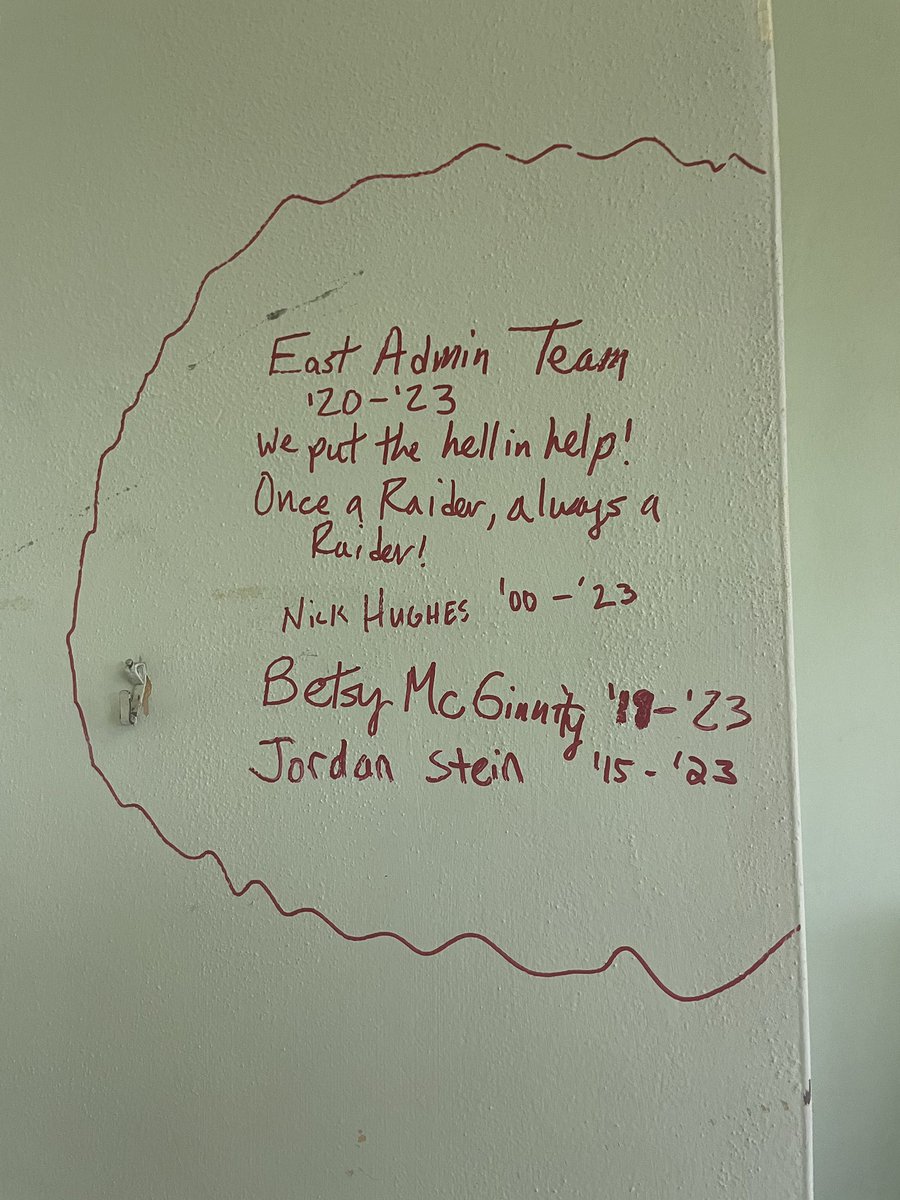 East Admin Team
'20-'23
We put the hell in help!
Once a Raider, always a
Raider!
NICK HUGHES '00-'23
Betsy McGinnity -'23
Jordan Stein '15-'23